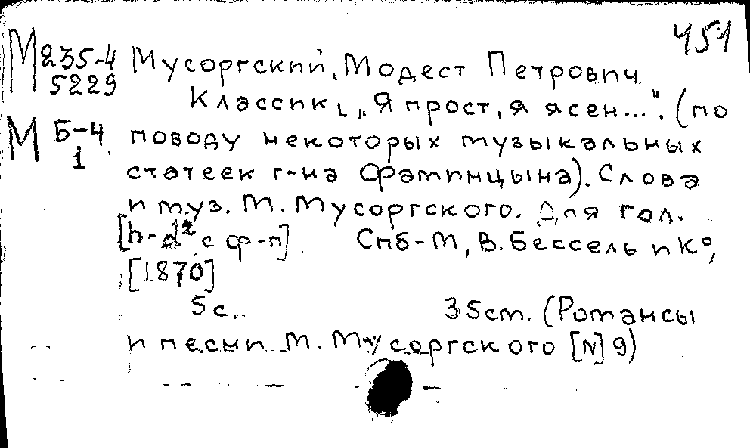 451
М 235-4 Мусоргский, Модест Петрович
5229
Классик, „Я прост, я ясен...". (по
М Б-4 поводу некоторых музыкальных
1
статеек г-на Фаминцына). Слова
и муз. М. Мусоргского. Для гол.
[h-d² с ф-п] Спб-М, В. Бессель и К°,
[1870]
5 с. 35 см. (Романсы
и песни М. Мусоргского [N] 9)